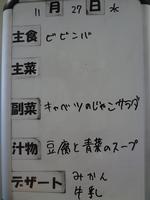 11月27日 水
主食 ビビンバ
主菜
副菜 キャベツのじゃこサラダ
汁物 豆腐と青菜のスープ
デザート みかん
牛乳